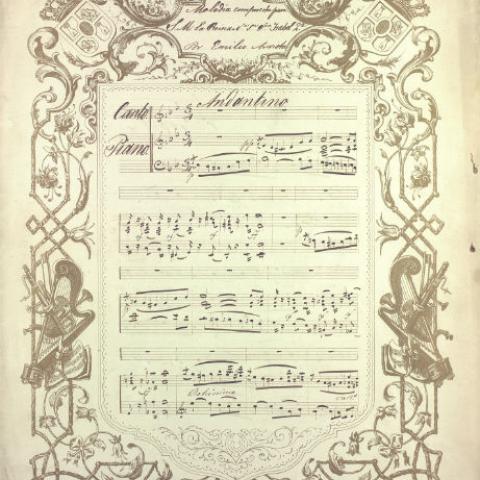 Melodia compuesta para
S. M. la Reina Dª Isabel 2ª
Por Emilio Arrieta
Andantino
Canto
Piano
pp
p